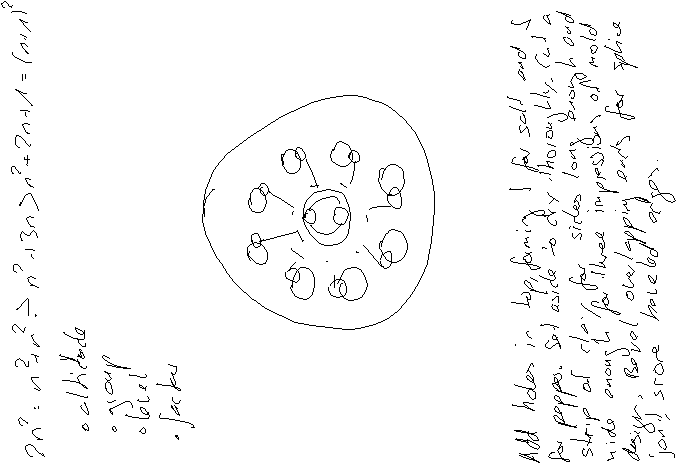 2n² = n² + n² > n² + 3n > n² + 2n + 1 = (n+1)²
• altitude
• group
• level
• factor
Add holes in top, forming S for salt and S
for pepper. Set aside to dry thoroughly. Cut a
strip of clay for sides long enough and
wide enough for three impressions of mold
design. Bevel overlapping ends for splice
joint, score beveled edges.